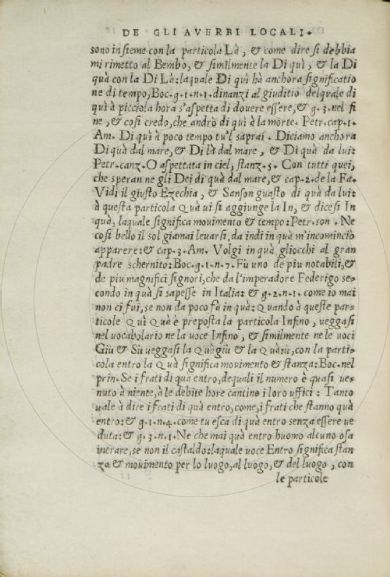 DE GLI AVERBI LOCALI.
sono insieme con la particola Là, & come dire si debbia
mi rimetto al Bembo, & similmente la Di quì, & la Di
quà con la Di Là: laquale Di quì hà anchora significatio
ne di tempo, Boc.g.1.n.1. dinanzi al giuditio delquale di
quà à picciola hora s'aspetta di douere essere, & g.3.nel fi
ne, & così credo, che andrò di quì à la morte. Petr.cap.1.
Am. Di quì à poco tempo tu'l saprai. Diciamo anchora
Di quà dal mare, & Di là dal mare, & Di quà da lui:
Petr.canz. O aspettata in ciel, stanz.5. Con tutti quei,
che speran ne gli Dei di quà dal mare, & cap.2.de la Fa.
Vidi il giusto Ezechia, & Sanson guasto di quà da lui:
à questa particola Quà ui si aggiunge la In, & dicesi In
quà, laquale significa mouimento & tempo: Petr.son. Ne
così bello il sol giamai leuarsi, da indi in quà m'incominciò
apparere: & cap.3.Am. Volgi in quà gliocchi al gran
padre schernito: Boc.g.1.n.7. Fù uno de piu notabili, &
de piu magnifici signori, che da l'imperadore Federigo se-
condo in quà si sapesse in Italia: & g.2.n.1. come io mai
non ci fui, se non da poco fà in quà: Quando à queste par-
ticole Quì Quà è preposta la particola Infino, ueggasi
nel uocabolario ne la uoce Infino, & similmente ne le uoci
Giu & Sù ueggasi la Quàgiù & la Quàsù, con la parti-
cola entro la Quà significa mouimento & stanza: Boc.nel
prin. Se i frati di qua entro, dequali il numero è quasi ue-
nuto à niente, à le debite hore cantino i loro uffici: Tanto
uale à dire i frati di quà entro, come, i frati che stanno quà
entro: & g.1.n.4. come tu esca di quà entro senza essere ue
duta: & g.3.n.1. Ne che mai quà entro huomo alcuno osa
intrare, se non il castaldo: laquale uoce Entro significa stan
za & mouimento per lo luogo, al luogo, & del luogo, con
le particole